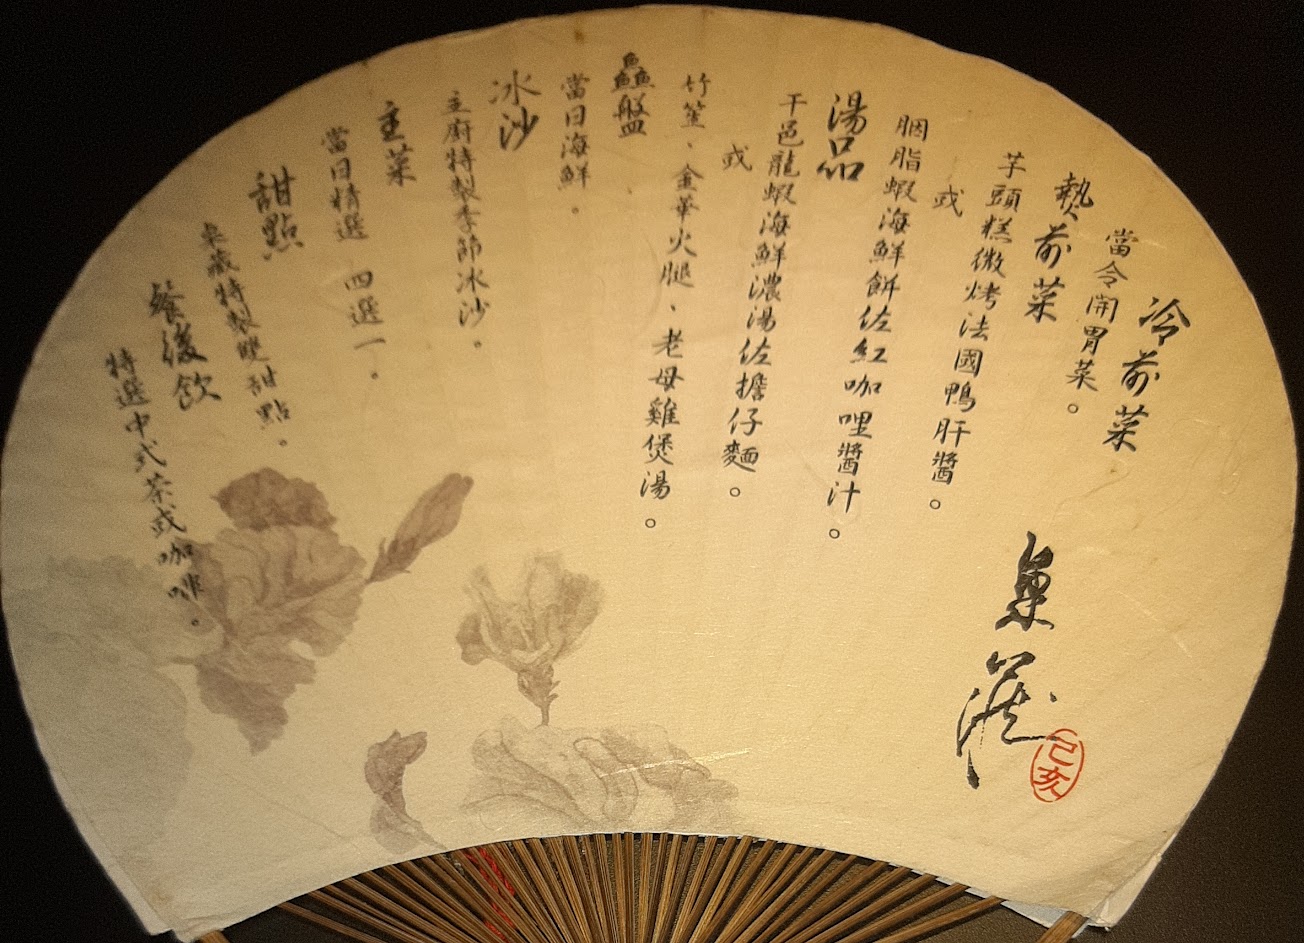 冷前菜
當令開胃菜。
熱前菜
芋頭糕微烤法國鴨肝醬。
或
胭脂蝦海鮮餅佐紅咖哩醬汁。
湯品
干邑龍蝦海鮮濃湯佐擔仔麵。
或
竹笙、金華火腿、老母雞煲湯。
鱻盤
當日海鮮。
冰沙
主廚特製季節冰沙。
主菜
當日精選 四選一。
甜點
桌藏特製雙甜點。
餐後飲
特選中式茶或咖啡。
桌藏
己亥